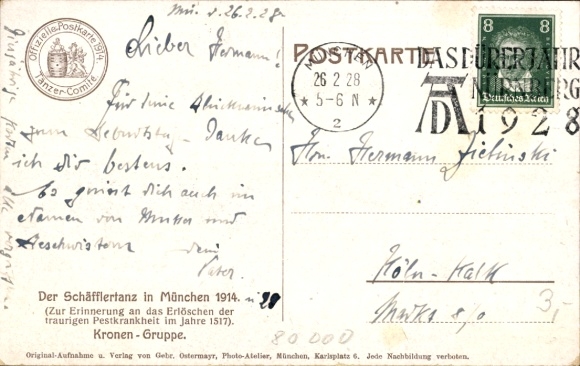 Mü. d. 26.2.28.
Offizielle Postkarte 1914
Tänzer-Comité
Lieber Hermann!
Für Deine
zum Geburtstag Danke
ich dir bestens.
Es grüsst dich auch im
Namen von Mutter und
Geschwistern dein
Vater.
Der Schäfflertanz in München 1914. u 28
(Zur Erinnerung an das Erlöschen der
traurigen Pestkrankheit im Jahre 1517).
Kronen-Gruppe.
POSTKARTE
MÜNCHEN
26 2 28
★ 5-6 N ★
2
DAS DÜRERJAHR
NÜRNBERG
AD 1928
8 8
Deutsches Reich
Hrn. Hermann Zielinski
Köln-Kalk
3,-
80 000
Original-Aufnahme u. Verlag von Gebr. Ostermayr, Photo-Atelier, München, Karlsplatz 6. Jede Nachbildung verboten.